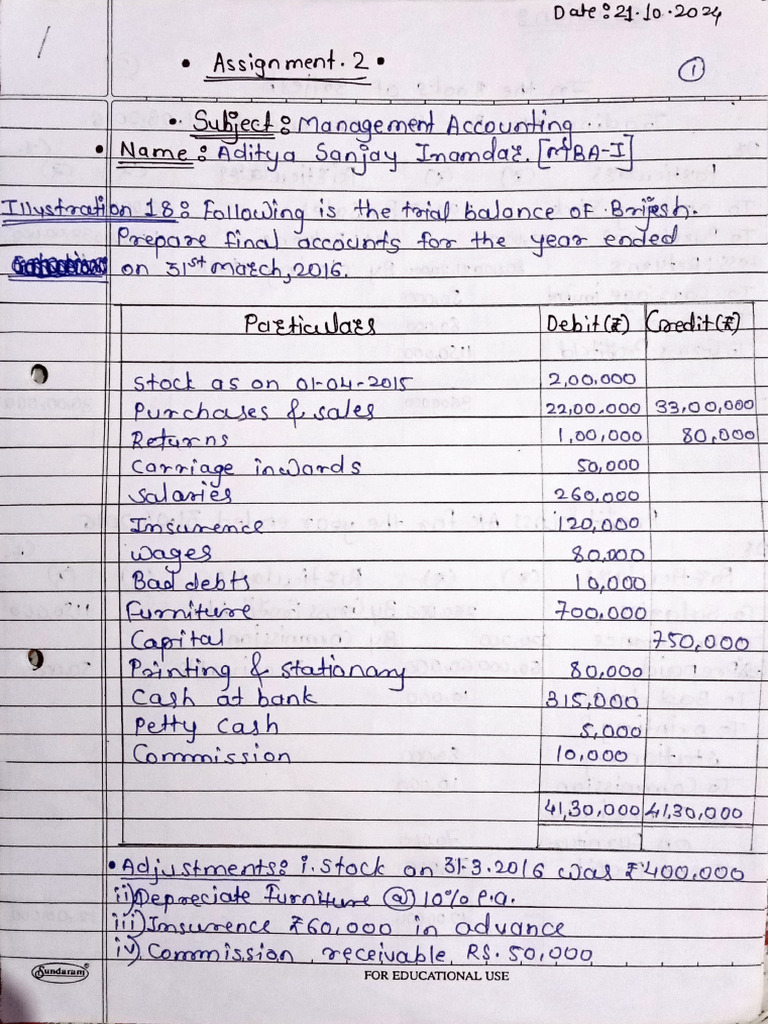 Date: 21.10.2024
• Assignment. 2 •
1
• Subject: Management Accounting
• Name: Aditya Sanjay Inamdar. [MBA-I]
Illustration 18: Following is the trial balance of Brijesh.
Prepare final accounts for the year ended
on 31st March, 2016.
Particulars Debit(₹) Credit(₹)
Stock as on 01-04-2015 2,00,000
Purchases & sales 22,00,000 33,00,000
Returns 1,00,000 80,000
Carriage inwards 50,000
Salaries 260,000
Insurence 120,000
Wages 80,000
Bad debts 10,000
Furniture 700,000
Capital 750,000
Printing & stationary 80,000
Cash at bank 315,000
Petty Cash 5,000
Commission 10,000
41,30,000 41,30,000
• Adjustments: i. Stock on 31.3.2016 was ₹400,000
ii) Depreciate Furniture @ 10% P.a.
iii) Insurence ₹60,000 in advance
iv) Commission receivable RS. 50,000
Sundaram
FOR EDUCATIONAL USE